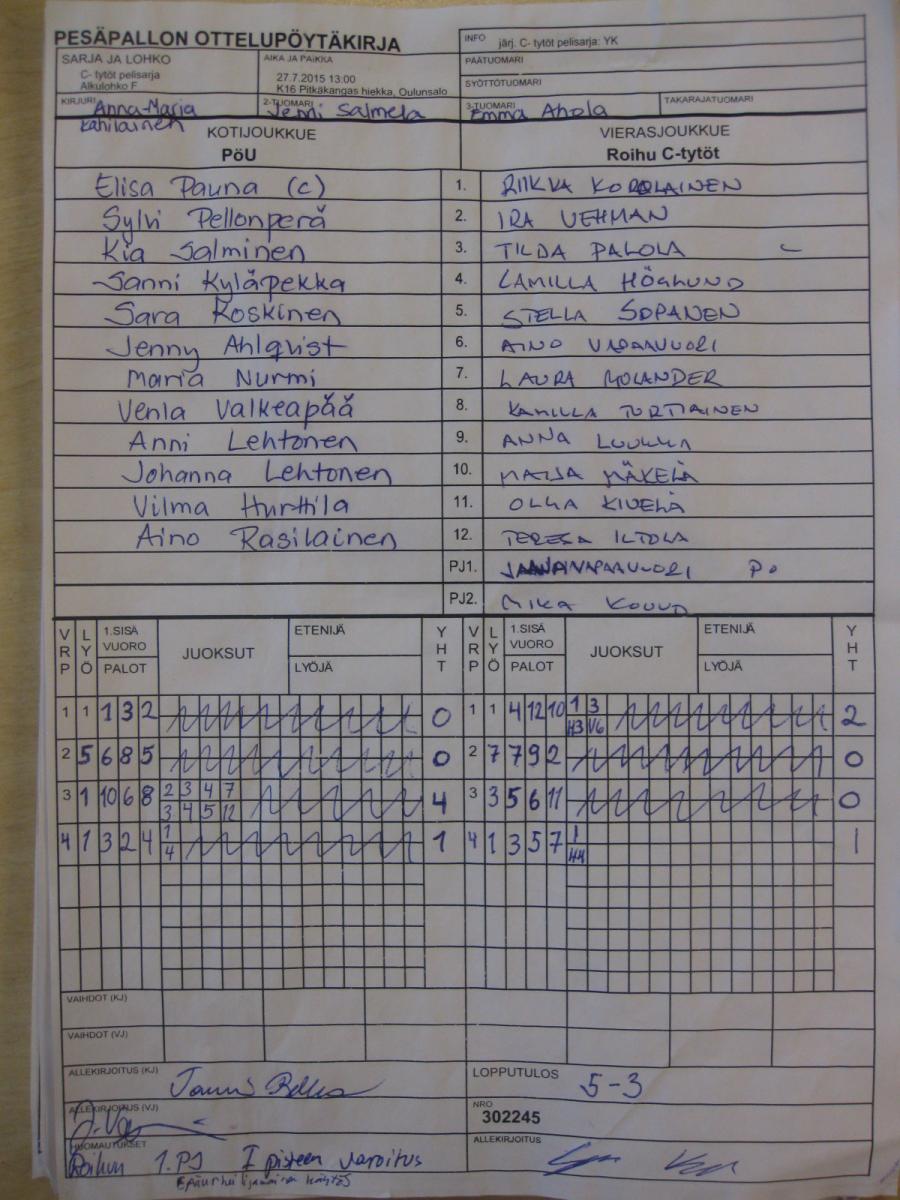 PESÄPALLON OTTELUPÖYTÄKIRJA
INFO järj. C- tytöt pelisarja: YK
SARJA JA LOHKO
C- tytöt pelisarja
Alkulohko F
AIKA JA PAIKKA
27.7.2015 13:00
K16 Pitkäkangas hiekka, Oulunsalo
PÄÄTUOMARI
SYÖTTÖTUOMARI
KIRJURI Anna-Maria Kahilainen
2-TUOMARI Jenni Salmela
3-TUOMARI Emma Ahola
TAKARAJATUOMARI
KOTIJOUKKUE
PöU
VIERASJOUKKUE
Roihu C-tytöt
Elisa Pauna (c) 1. RIIKKA KOROLAINEN
Sylvi Pellonperä 2. IRA VEHMAN
Kia Salminen 3. TILDA PALOLA
Sanni Kyläpekka 4. CAMILLA HÖGLUND
Sara Koskinen 5. STELLA SOPANEN
Jenny Ahlqvist 6. AINO VAPAAVUORI
Maria Nurmi 7. LAURA MOLANDER
Venla Valkeapää 8. KAMILLA TURTIAINEN
Anni Lehtonen 9. ANNA LUUKKA
Johanna Lehtonen 10. MAIJA MÄKELÄ
Vilma Hurttila 11. OLGA KIVELÄ
Aino Rasilainen 12. TERESA ILTOLA
PJ1. VAPAAVUORI
PJ2. MIKA
VRP LYÖ 1.SISÄ VUORO PALOT JUOKSUT ETENIJÄ LYÖJÄ YHT VRP LYÖ 1.SISÄ VUORO PALOT JUOKSUT ETENIJÄ LYÖJÄ YHT
1 1 1 3 2 0 1 1 4 12 10 1 3 2
H3 V6
2 5 6 8 5 0 2 7 7 9 2 0
3 1 10 6 8 2 3 4 7 4 3 3 5 6 11 0
3 4 5 12
4 1 3 2 4 1 1 4 1 3 5 7 1 1
4 H4
VAIHDOT (KJ)
VAIHDOT (VJ)
ALLEKIRJOITUS (KJ)
LOPPUTULOS 5-3
ALLEKIRJOITUS (VJ)
NRO
302245
HUOMAUTUKSET
ALLEKIRJOITUS
Roihun 1.PJ I pisteen varoitus